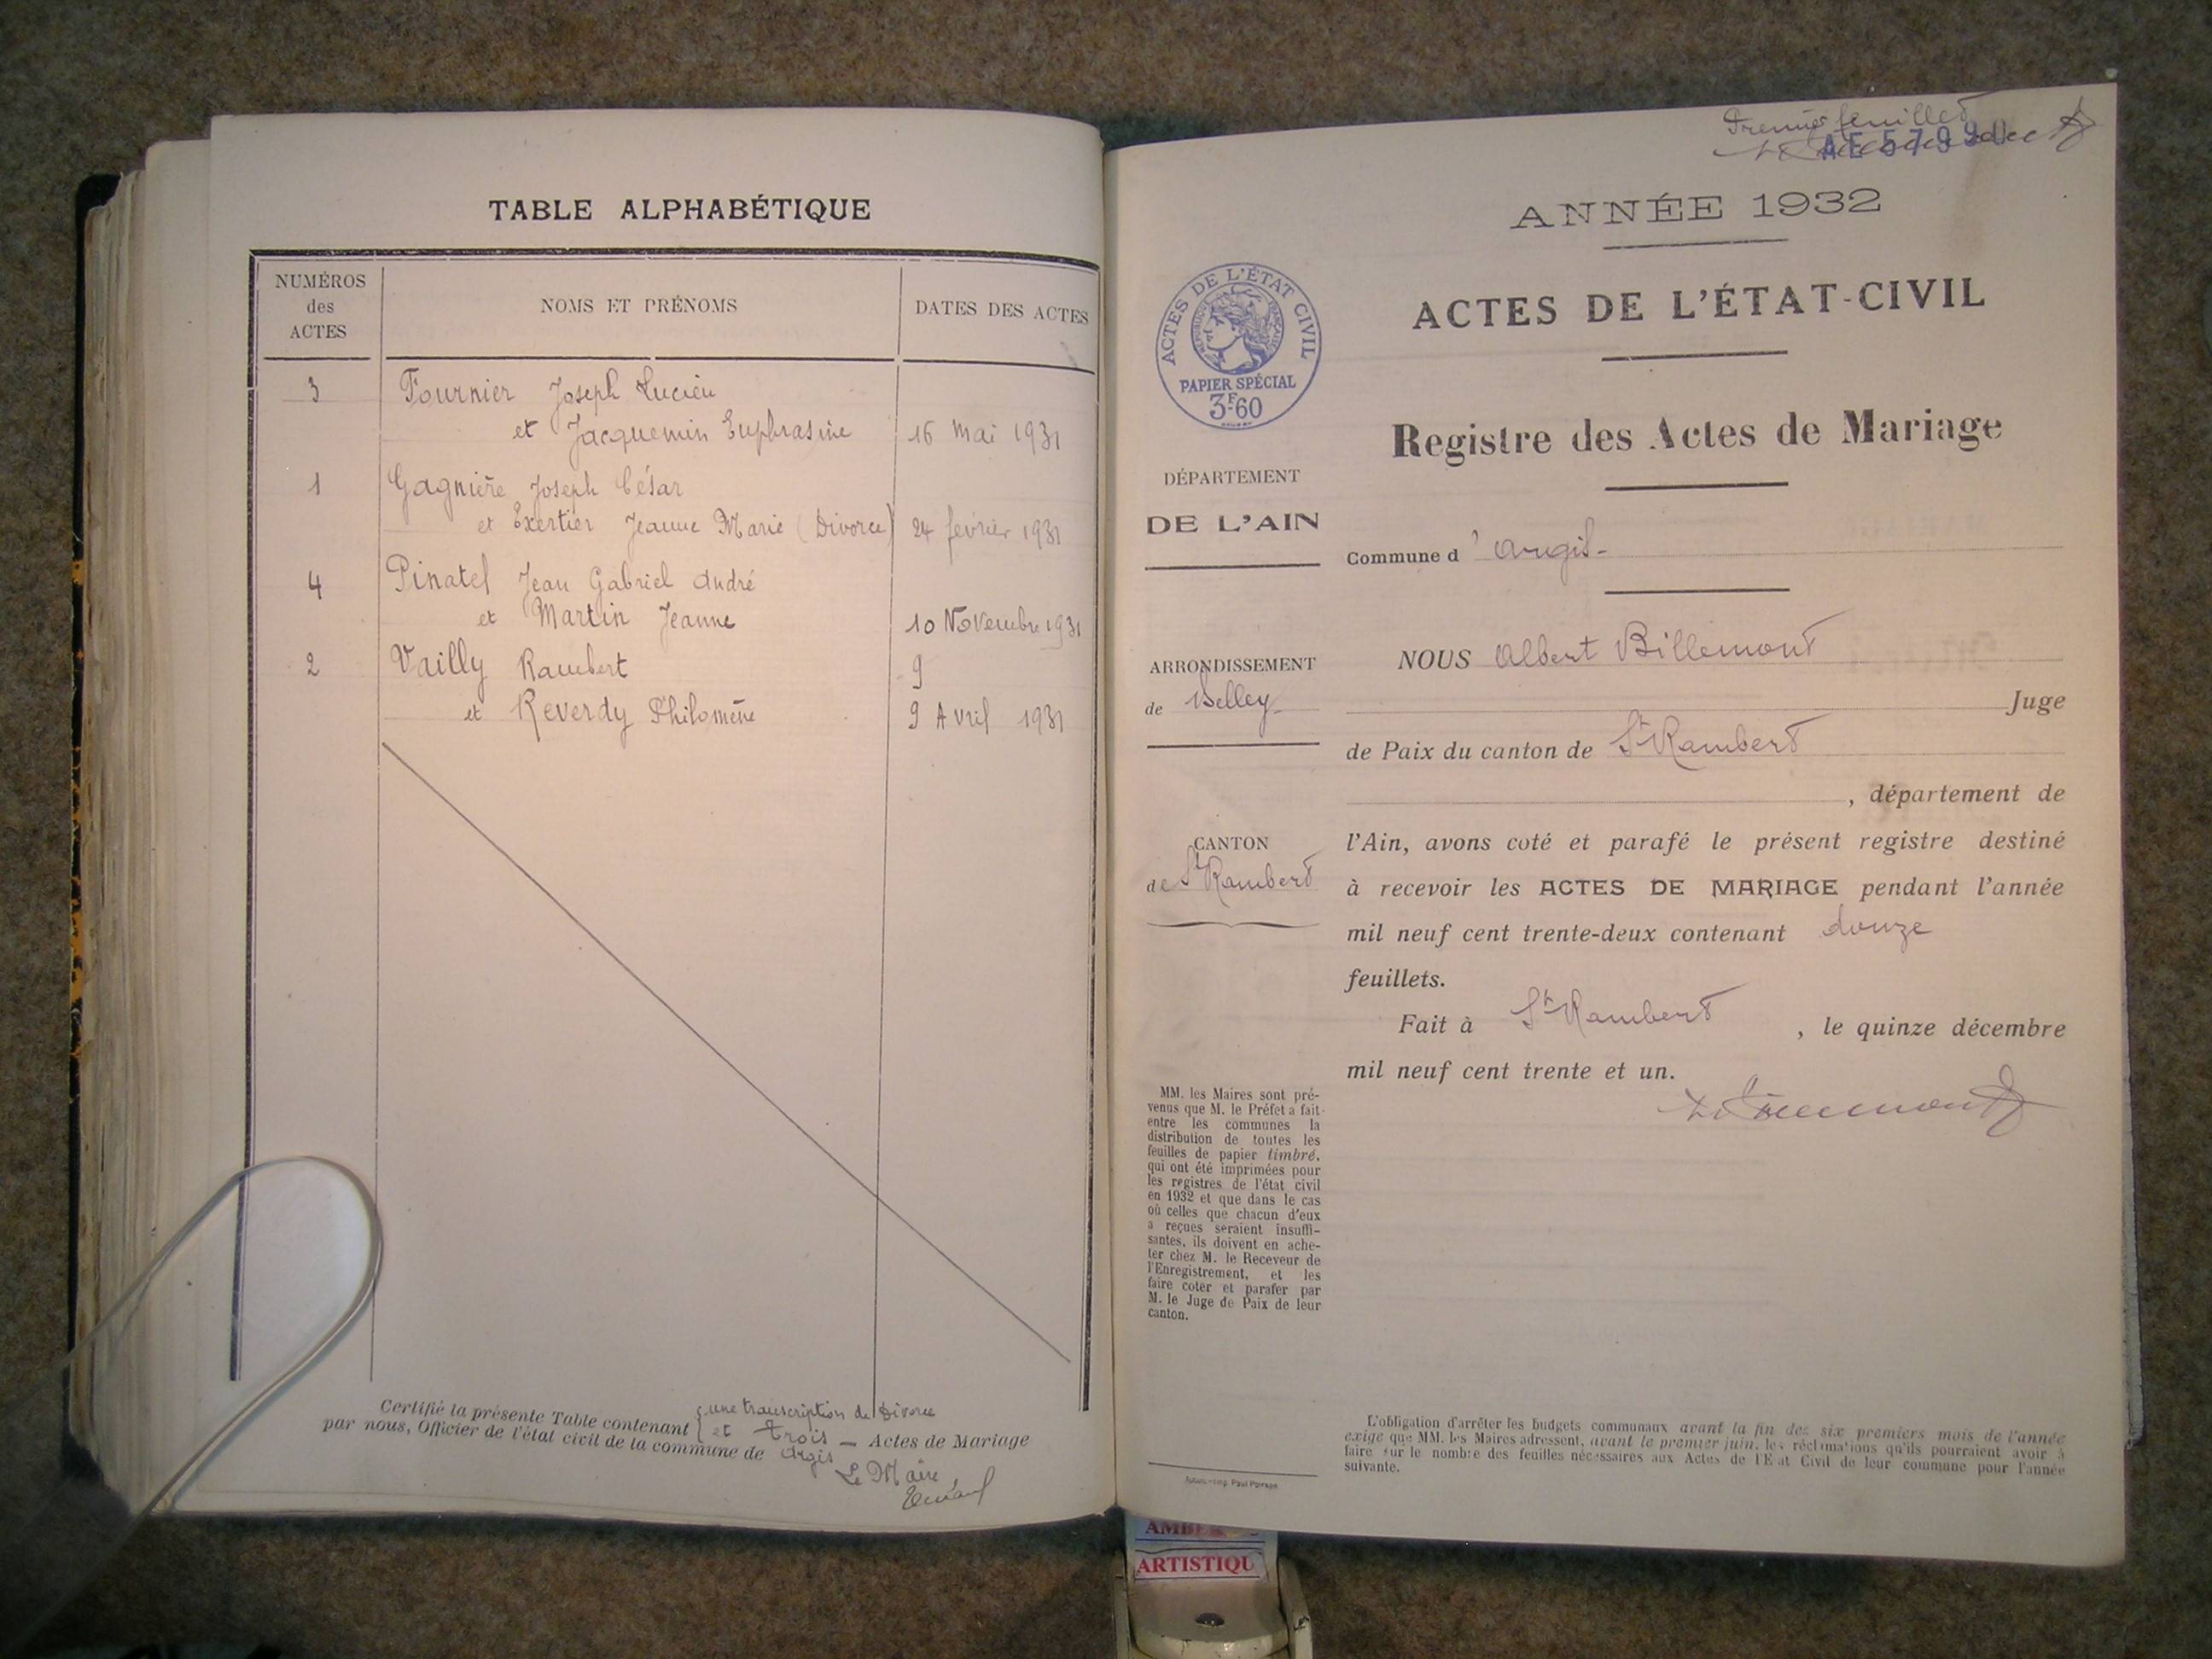 TABLE ALPHABÉTIQUE
NUMÉROS des ACTES
NOMS ET PRÉNOMS
DATES DES ACTES
3 Fournier Joseph Lucien
et Jacquemin Euphrasine 16 Mai 1931
1 Gagnière Joseph César
et Exertier Jeanne Marie (Divorce) 24 février 1931
4 Pinatel Jean Gabriel André
et Martin Jeanne 10 Novembre 1931
2 Vailly Rambert 9
et Reverdy Philomène 9 Avril 1931
Certifié la présente Table contenant { une transcription de Divorce
et trois — Actes de Mariage
par nous, Officier de l'état civil de la commune de Argis
Le Maire,
Premier feuillet
AE 5799
ANNÉE 1932
ACTES DE L'ÉTAT CIVIL
RÉPUBLIQUE FRANÇAISE
PAPIER SPÉCIAL
3F60
ACTES DE L'ÉTAT-CIVIL
Registre des Actes de Mariage
DÉPARTEMENT
DE L'AIN
Commune d'Argis
ARRONDISSEMENT
de Belley
CANTON
de St Rambert
NOUS Albert Billemont
Juge
de Paix du canton de St Rambert
, département de
l'Ain, avons coté et parafé le présent registre destiné
à recevoir les ACTES DE MARIAGE pendant l'année
mil neuf cent trente-deux contenant douze
feuillets.
Fait à St Rambert, le quinze décembre
mil neuf cent trente et un.
MM. les Maires sont pré-
venus que M. le Préfet a fait
entre les communes la
distribution de toutes les
feuilles de papier timbré,
qui ont été imprimées pour
les registres de l'état civil
en 1932 et que dans le cas
où celles que chacun d'eux
a reçues seraient insuffi-
santes, ils doivent en ache-
ter chez M. le Receveur de
l'Enregistrement, et les
faire coter et parafer par
M. le Juge de Paix de leur
canton.
L'obligation d'arrêter les budgets communaux avant la fin des six premiers mois de l'année
exige que MM. les Maires adressent, avant le premier juin, les réclamations qu'ils pourraient avoir à
faire sur le nombre des feuilles nécessaires aux Actes de l'Etat Civil de leur commune pour l'année
suivante.
ARTISTIQU